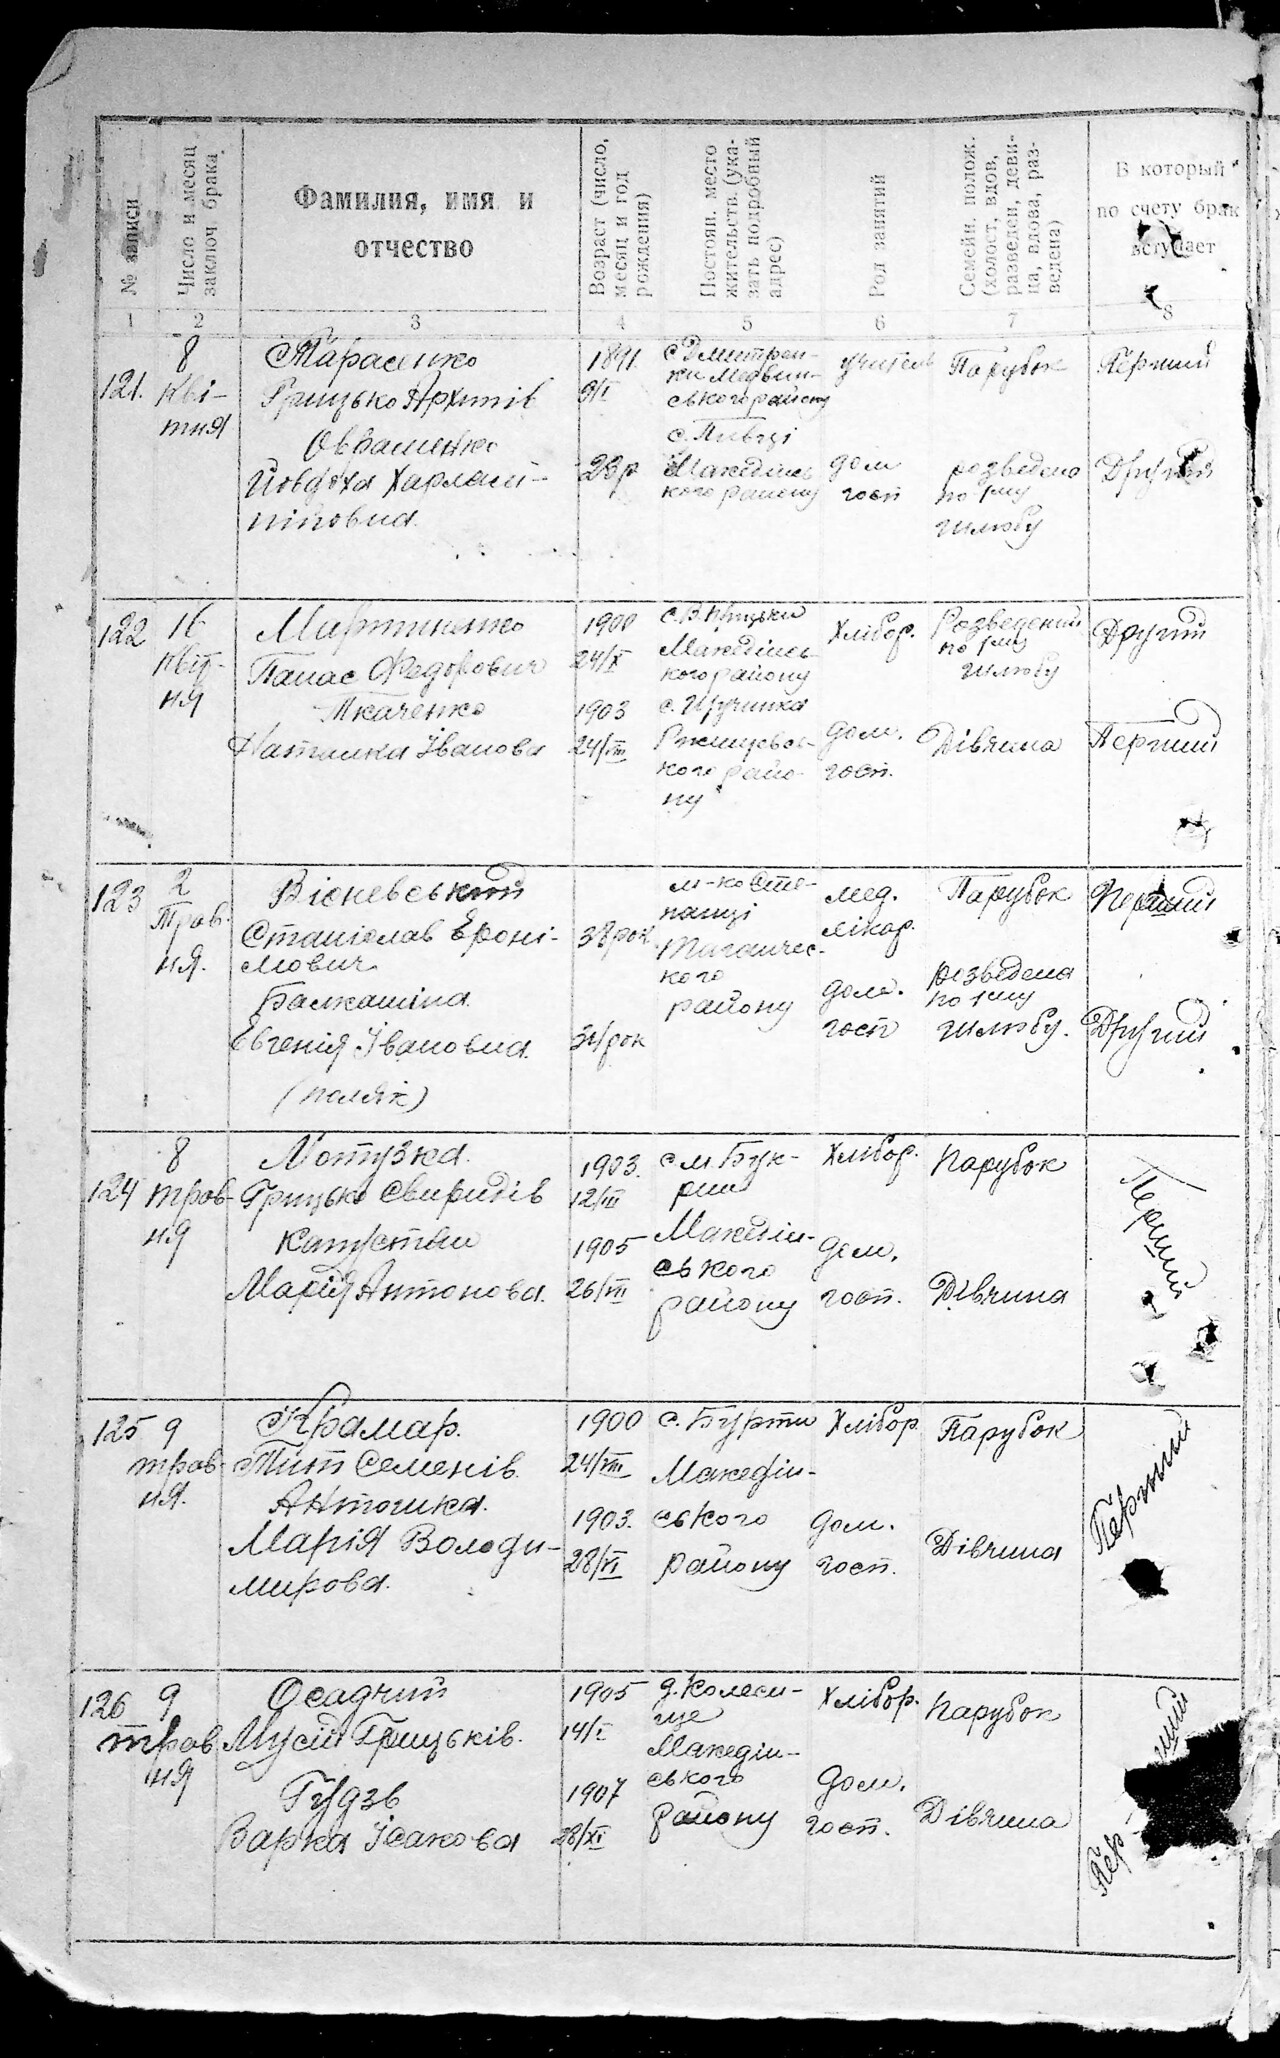 № записи
Число и месяц
заключ. брака
Фамилия, имя и
отчество
Возраст (число,
месяц и год
рождения)
Постоян. место
жительств. (ука-
зать подробный
адрес)
Род занятий
Семейн. полож.
(холост, вдов,
разведен, деви-
ца, вдова, раз-
ведена)
В который
по счету брак
вступает
1 2 3 4 5 6 7 8
121.
8
Кві-
тня
Тарасенко
Грицько Архипів
Овраменко
Йовдоха Харлам-
піївна
1891.
9/I
23р
с. Дмитрен-
ки Медвин-
ського району
с. Пивці
Македінсь
кого району
учитель
дом
госп
Парубок
розведена
по 1му
шлюбу
Перший
Другий
122
16
Квіт-
ня
Мартиненко
Панас Федорович
Ткаченко
Наталка Іванова
1900
24/X
1903
24/III
с. В. Прицьки
Македінсь-
кого району
с. Щучинка
Ржищевсь-
кого райо-
ну
Хлібор.
дом.
госп.
Розведений
по 1му
шлюбу
Дівчина
Другий
Перший
123
2
Трав.
ня.
Вісневський
Станіслав Ероні-
мович
Балкашина
Евгенія Івановна
(поляк)
38 рок
31/рок
м-ко Сте-
панці
Таганчес-
кого
району
мед.
лікар.
дом.
госп
Парубок
розведена
по 1му
шлюбу.
Перший
Другий
124
8
трав-
ня
Мотузка
Грицько Свиридів
Капустян
Марія Антонова.
1903.
12/III
1905
26/III
с. м. Бук-
рин
Македін-
ського
району
Хлібор.
дом.
госп.
Парубок
Дівчина
Перший
125
9
трав-
ня.
Крамар.
Тит Семенів.
Антошка.
Марія Володи-
мирова.
1900
24/VIII
1903.
28/VI
с. Бурти
Македін-
ського
району
Хлібор
дом.
госп.
Парубок
Дівчина
Перший
126
9
трав
ня
Осадчий
Мусій Грицьків.
Гудзь
Варка Ісакова
1905
14/I
1907
28/XI
д. Колеси-
ще
Македін-
ського
району
Хлібор.
дом.
госп.
Парубок
Дівчина
Пер-
ший